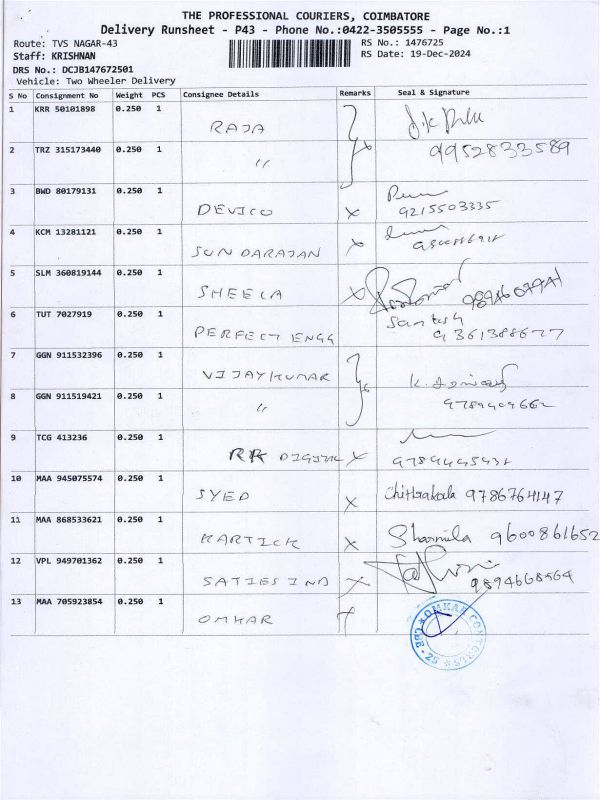 THE PROFESSIONAL COURIERS, COIMBATORE
Delivery Runsheet - P43 - Phone No.:0422-3505555 - Page No.:1
Route: TVS NAGAR-43
RS No.: 1476725
Staff: KRISHNAN
RS Date: 19-Dec-2024
DRS No.: DCJB147672501
Vehicle: Two Wheeler Delivery
S No Consignment No Weight PCS Consignee Details Remarks Seal & Signature
1 KRR 50101898 0.250 1 RAJA
2 TRZ 315173440 0.250 1 " 9952833589
3 BWD 80179131 0.250 1 DEVICO x 9215503335
4 KCM 13281121 0.250 1 SUNDARAJAN x
5 SLM 360819144 0.250 1 SHEELA x
6 TUT 7027919 0.250 1 PERFECT ENGG Santosh 9361388677
7 GGN 911532396 0.250 1 VIJAYKUMAR
8 GGN 911519421 0.250 1 "
9 TCG 413236 0.250 1 RR x
10 MAA 945075574 0.250 1 SYED x Chithrakala 9786764147
11 MAA 868533621 0.250 1 KARTICK x Sharmila 9600861652
12 VPL 949701362 0.250 1 x 9894668564
13 MAA 705923854 0.250 1 OMKAR x
OMKAR
CBE - 25